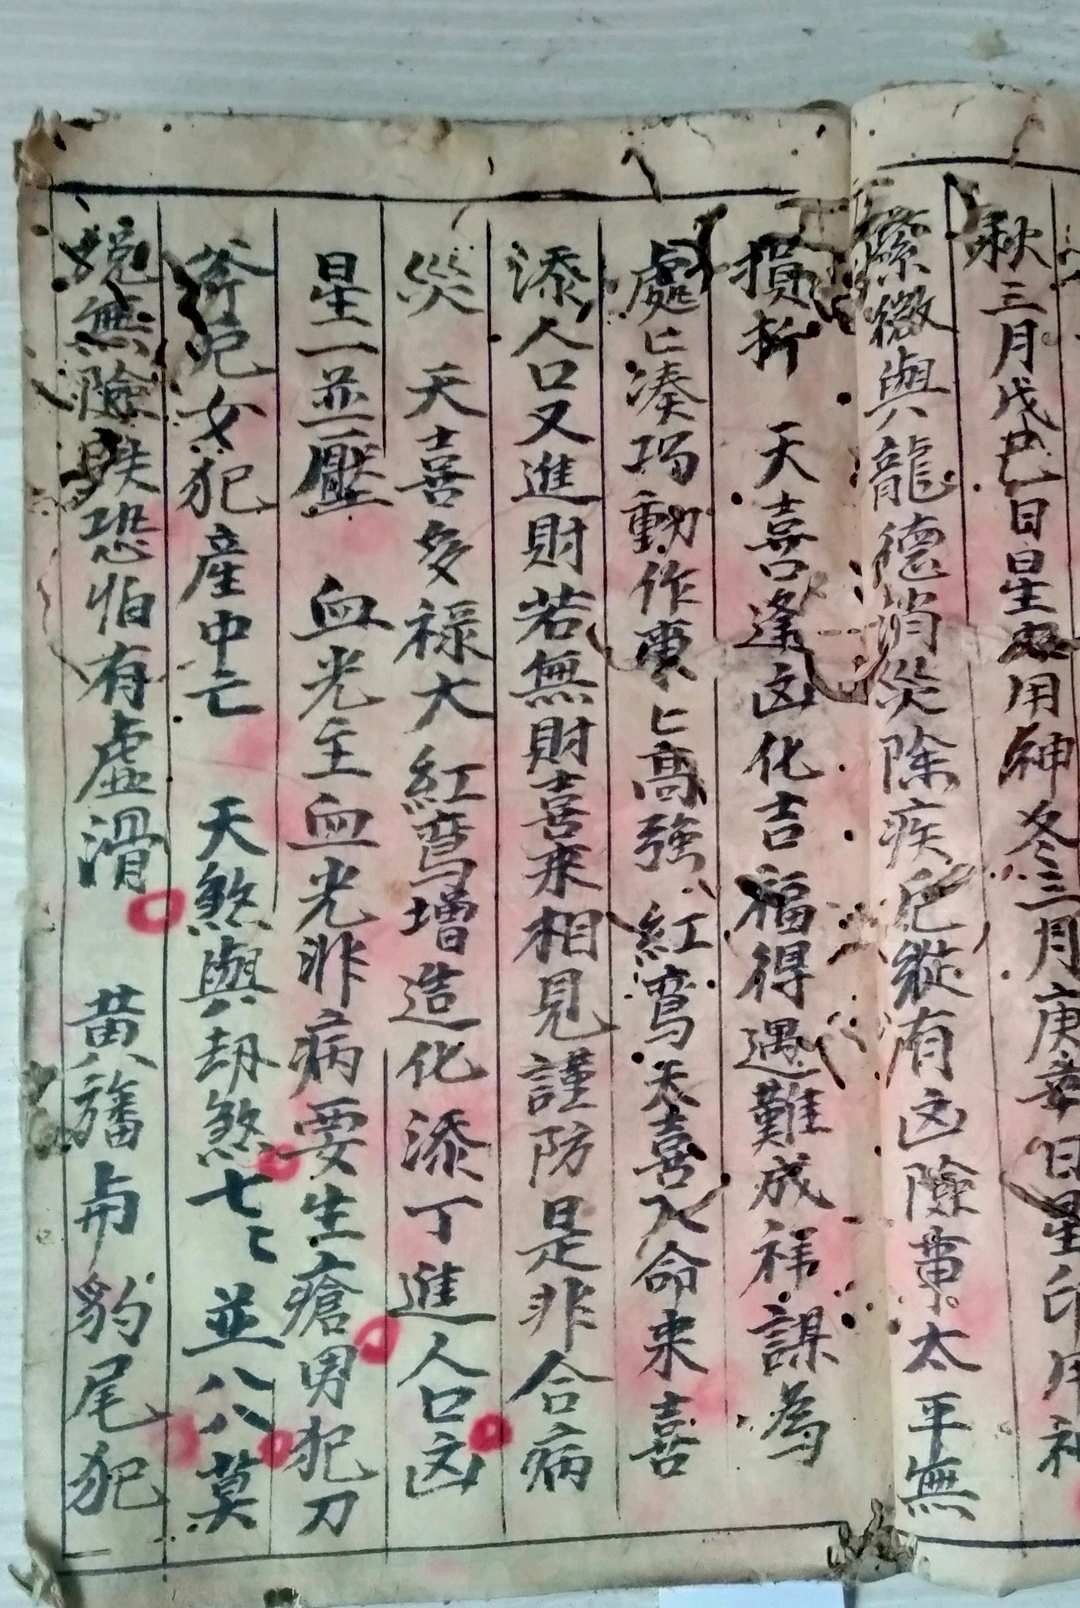 秋三月戊己日星 用神冬三月庚辛日星印用神
紫微與龍德消災除疾厄縱有凶險事太平無
損折 天喜逢凶化吉福得遇難成祥謀為
處匕凑巧動作事匕高強 紅鸞天喜入命来喜
添人口又進財若無財喜来相見謹防是非合病
災 天喜多祿大紅鸞增造化添丁進人口凶
星一並壓 血光主血光非病要生瘡男犯刀
斧厄女犯産中亡 天煞與劫煞七匕並八八莫
無險 恐怕有虛滑 黄旛與豹尾犯